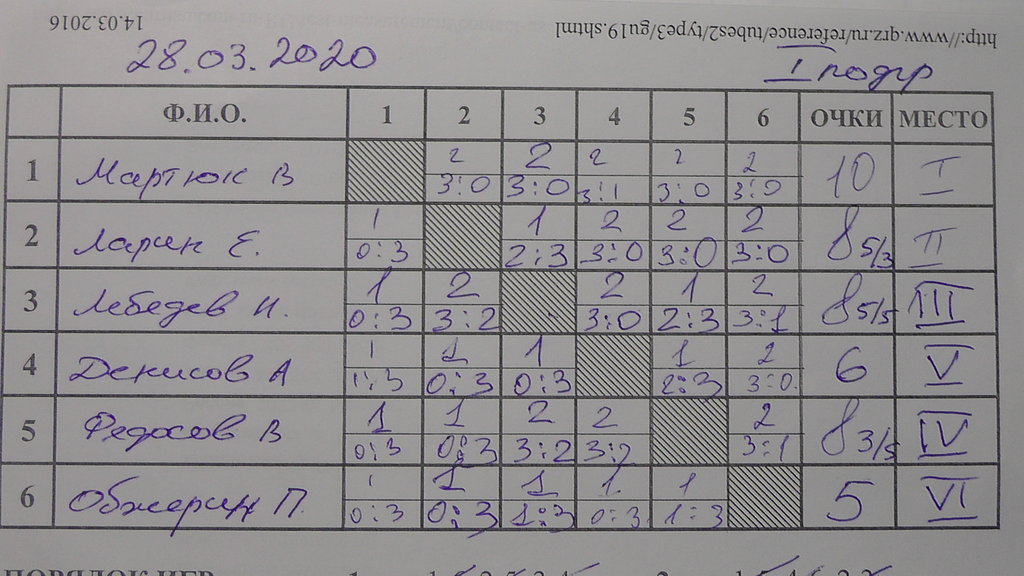 http://www.qrz.ru/reference/tubes2/type3/gu19.shtml 14.03.2016
28.03.2020 I подгр
Ф.И.О. 1 2 3 4 5 6 ОЧКИ МЕСТО
1 Мартюк В 2 3:0 2 3:0 2 3:1 2 3:0 2 3:0 10 I
2 Ларин Е. 1 0:3 1 2:3 2 3:0 2 3:0 2 3:0 8 5/3 II
3 Лебедев И. 1 0:3 2 3:2 2 3:0 1 2:3 2 3:1 8 5/5 III
4 Денисов А 1 1:3 1 0:3 1 0:3 1 2:3 2 3:0 6 V
5 Федосов В 1 0:3 1 0:3 2 3:2 2 3:2 2 3:1 8 3/5 IV
6 Обжерин П. 1 0:3 1 0:3 1 1:3 1 0:3 1 1:3 5 VI